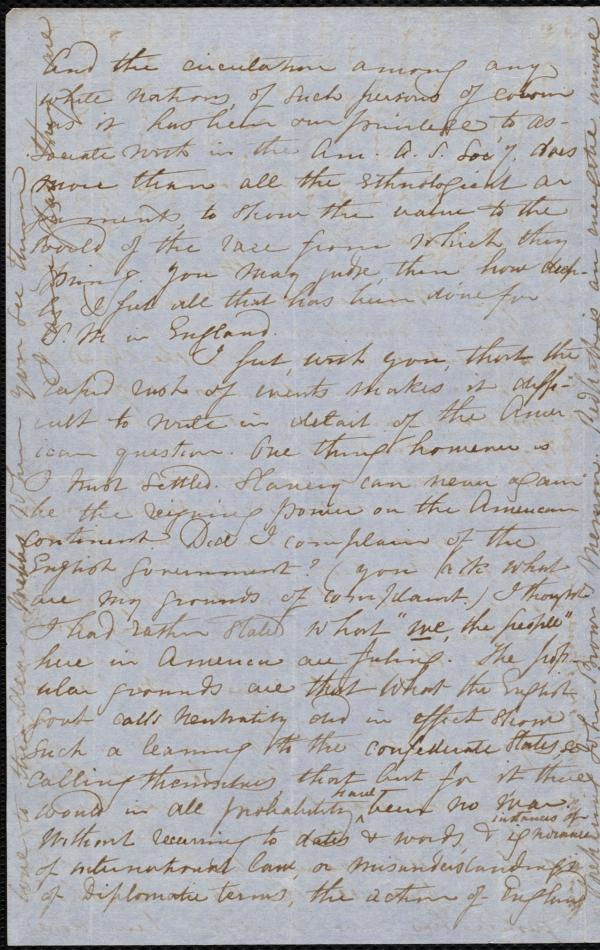 And the circulation among any
white nations, of such persons of colour
as it has been our privilege to as-
sociate with in the Am. A. S. Soc'y. does
more than all the Ethnological ar
guments, to show the value to the
world of the race from which they
spring. You may judge, then how deep-
ly I feel all that has been done for
S. M in England.
I feel, with you, that the
rapid rush of events makes it diffi-
cult to write in detail of the Amer
ican question. One thing however is
I trust settled. Slavery can never again
be the reigning power on the American
continent. Did I complain of the
English Government? (you ask what
are my grounds of complaint.) I thought
I had rather stated what "we, the people"
here in America are feeling. The pop-
ular grounds are that what the English
govt calls neutrality did in effect show
such a leaning to the confederate States so
calling themselves, that but for it there
would in all probability have been no war.
Without recurring to dates & words, & instances of ignorance
of international law, or misunderstandings
of Diplomatic terms, the action of England
when you see them
John Brown